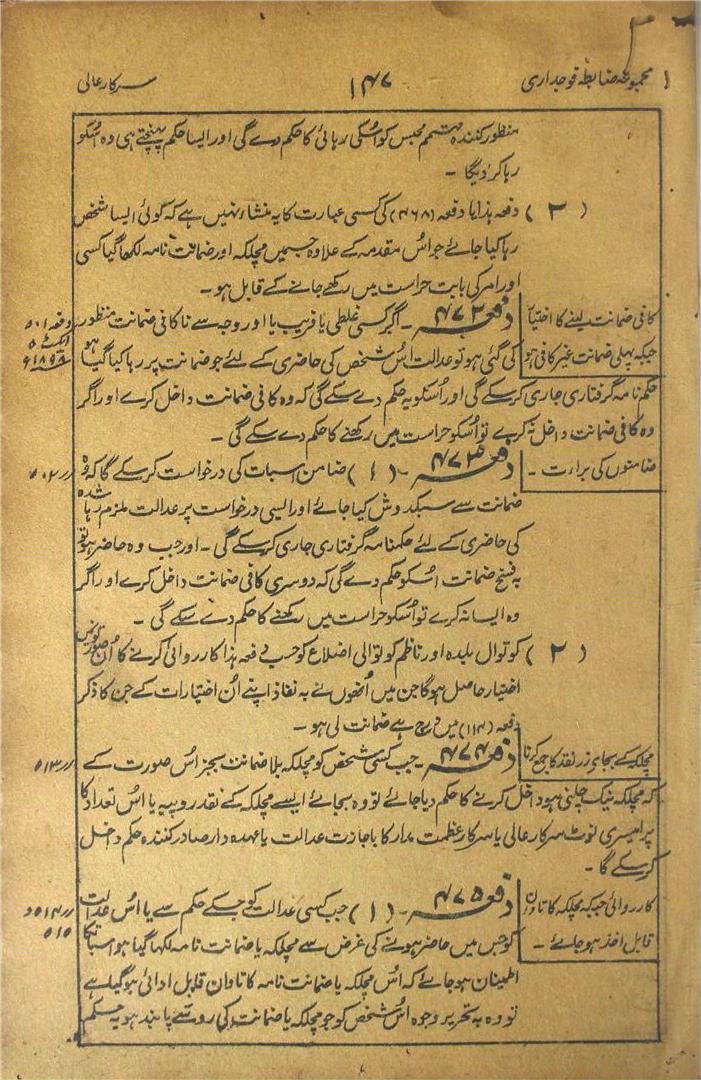 مجموعہ ضابطہ فوجداری ۱۴۷ سرکار عالی
منظور کنندہ مہتمم محبس کو اسکی رہائی کا حکم دے گی اور ایسا حکم پہنچتے ہی وہ اسکو
رہا کر دیگا ۔
( ۲ ) دفعہ ہذا یا دفعہ (۴۶۸) کی کسی عبارت کا یہ منشاء نہیں ہے کہ کوئی ایسا شخص
رہا کیا جائے جو اس مقدمہ کے علاوہ جسمیں مچلکہ اور ضمانت نامہ لکھا گیا کسی
اور امر کی بابت حراست میں رکھے جانے کے قابل ہو ۔
کافی ضمانت لینے کا اختیار
جبکہ پہلی ضمانت غیر کافی ہو
دفعہ ۴۷۲ ۔ اگر کسی غلطی یا فریب یا اور وجہ سے ناکافی ضمانت منظور
دفعہ ۵۰۱
ایکٹ ۵
۱۸۹۸ء
کی گئی ہو تو عدالت اس شخص کی حاضری کے لئے جو ضمانت پر رہا کیا گیا ہو
حکم نامہ گرفتاری جاری کر سکے گی اور اسکو یہ حکم دے سکے گی کہ وہ کافی ضمانت داخل کرے اور اگر
وہ کافی ضمانت داخل نہ کرے تو اسکو حراست میں رکھنے کا حکم دے سکے گی ۔
ضامنوں کی براءت ۔
دفعہ ۴۷۳ ۔ ( ۱ ) ضامن اس بات کی درخواست کر سکے گا کہ وہ
۵۰۲ ؍؍
ضمانت سے سبکدوش کیا جائے اور ایسی درخواست پر عدالت ملزم رہا شدہ
کی حاضری کے لئے حکمنامہ گرفتاری جاری کر سکے گی ۔ اور جب وہ حاضر ہو تو
بہ فسخ ضمانت اسکو حکم دے گی کہ دوسری کافی ضمانت داخل کرے اور اگر
وہ ایسا نہ کرے تو اسکو حراست میں رکھنے کا حکم دے سکے گی ۔
( ۲ ) کوتوال بلدہ اور ناظم کوتوالی اضلاع کو حسب دفعہ ہذا کارروائی کرنے کا ان صورتوں میں
اختیار حاصل ہوگا جن میں انھوں نے بہ نفاذ اپنے ان اختیارات کے جن کا ذکر
دفعہ (۱۱۴) میں درج ہے ضمانت لی ہو ۔
مچلکہ کے بجای زر نقد کا جمع کرنا
دفعہ ۴۷۴ ۔ جب کسی شخص کو مچلکہ بلا ضمانت بجز اس صورت کے
۵۱۳ ؍؍
کہ مچلکہ نیک چلنی ہو داخل کرنے کا حکم دیا جائے تو وہ بجائے ایسے مچلکہ کے نقد روپیہ یا اس تعداد کا
پرامیسری نوٹ سرکار عالی یا سرکار عظمت مدار کا باجازت عدالت یا عہدہ دار صادر کنندہ حکم داخل
کر سکے گا ۔
کارروائی جبکہ مچلکہ کا تاوان
قابل اخذ ہو جائے ۔
دفعہ ۴۷۵ ۔ ( ۱ ) جب کسی عدالت کو جسکے حکم سے یا اس عدالت
؍؍ ۵۱۴ و
۵۱۵
کو جس میں حاضر ہونے کی غرض سے مچلکہ یا ضمانت نامہ لکھا گیا ہو اس بات کا
اطمینان ہو جائے کہ اس مچلکہ یا ضمانت نامہ کا تاوان قابل ادائی ہو گیا ہے
تو وہ بہ تحریر وجوہ اس شخص کو جو مچلکہ یا ضمانت کی رو سے پابند ہو یہ حکم